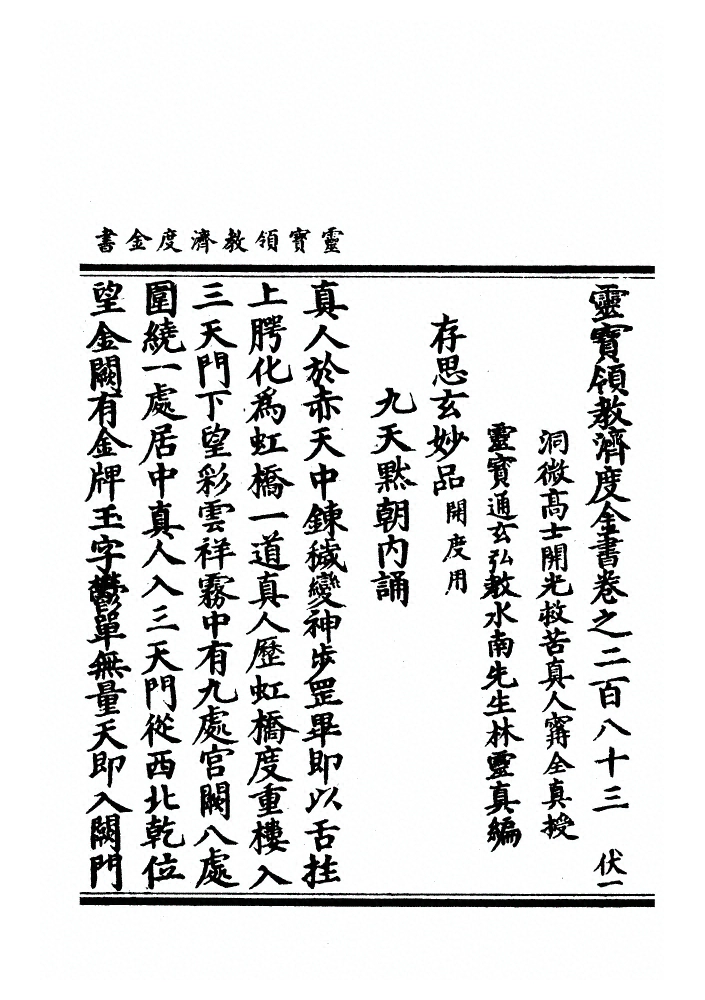 靈寶領教濟度金書
靈寶領教濟度金書卷之二百八十三 伏一
洞微高士開光救苦真人甯全真授
靈寶通玄弘教水南先生林靈真編
存思玄妙品開度用
九天點朝內誦
真人於赤天中鍊穢變神步罡畢即以舌拄
上腭化為虹橋一道真人歷虹橋度重樓入
三天門下望彩雲祥霧中有九處宮闕八處
圍繞一處居中真人入三天門從西北乾位
望金闕有金牌玉字鬱單無量天即入闕門